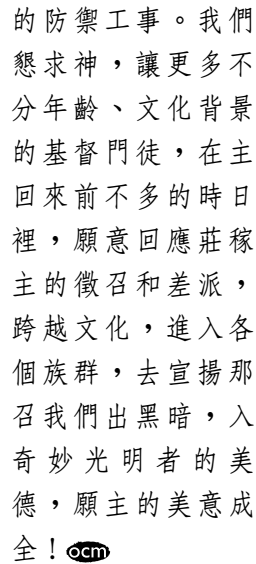 的防禦工事。我們
懇求神，讓更多不
分年齡、文化背景
的基督門徒，在主
回來前不多的時日
裡，願意回應莊稼
主的徵召和差派，
跨越文化，進入各
個族群，去宣揚那
召我們出黑暗，入
奇妙光明者的美
德，願主的美意成
全！ocm